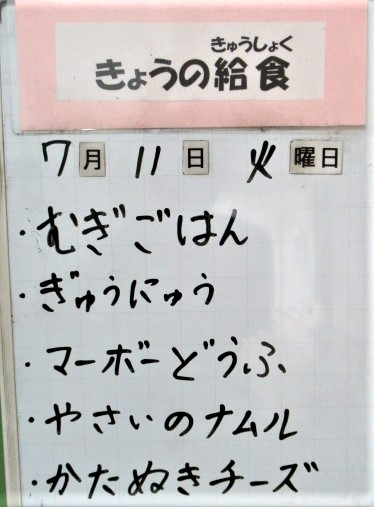 きゅうしょく
きょうの給食
7月 11日 火曜日
・むぎごはん
・ぎゅうにゅう
・マーボーどうふ
・やさいのナムル
・かたぬきチーズ